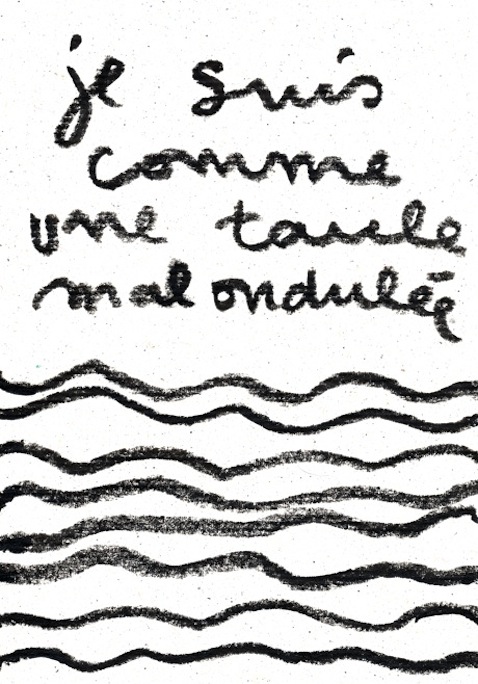 je suis
comme
une taule
mal ondulée